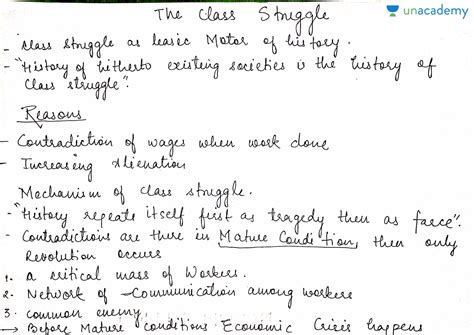 The Class Struggle
unacademy
- Class Struggle as basic Motor of history.
- "History of hitherto existing societies is the history of
Class struggle".
Reasons
- Contradiction of wages when work done
- Increasing Alienation
Mechanism of class struggle.
- "History repeate itself first as tragedy then as farce".
- Contradictions are there in Mature Condition, then only
Revolution occurs
1. a critical mass of Workers.
2. Network of Communication among workers
3. common enemy.
→ Before Mature conditions Economic Crisis happens